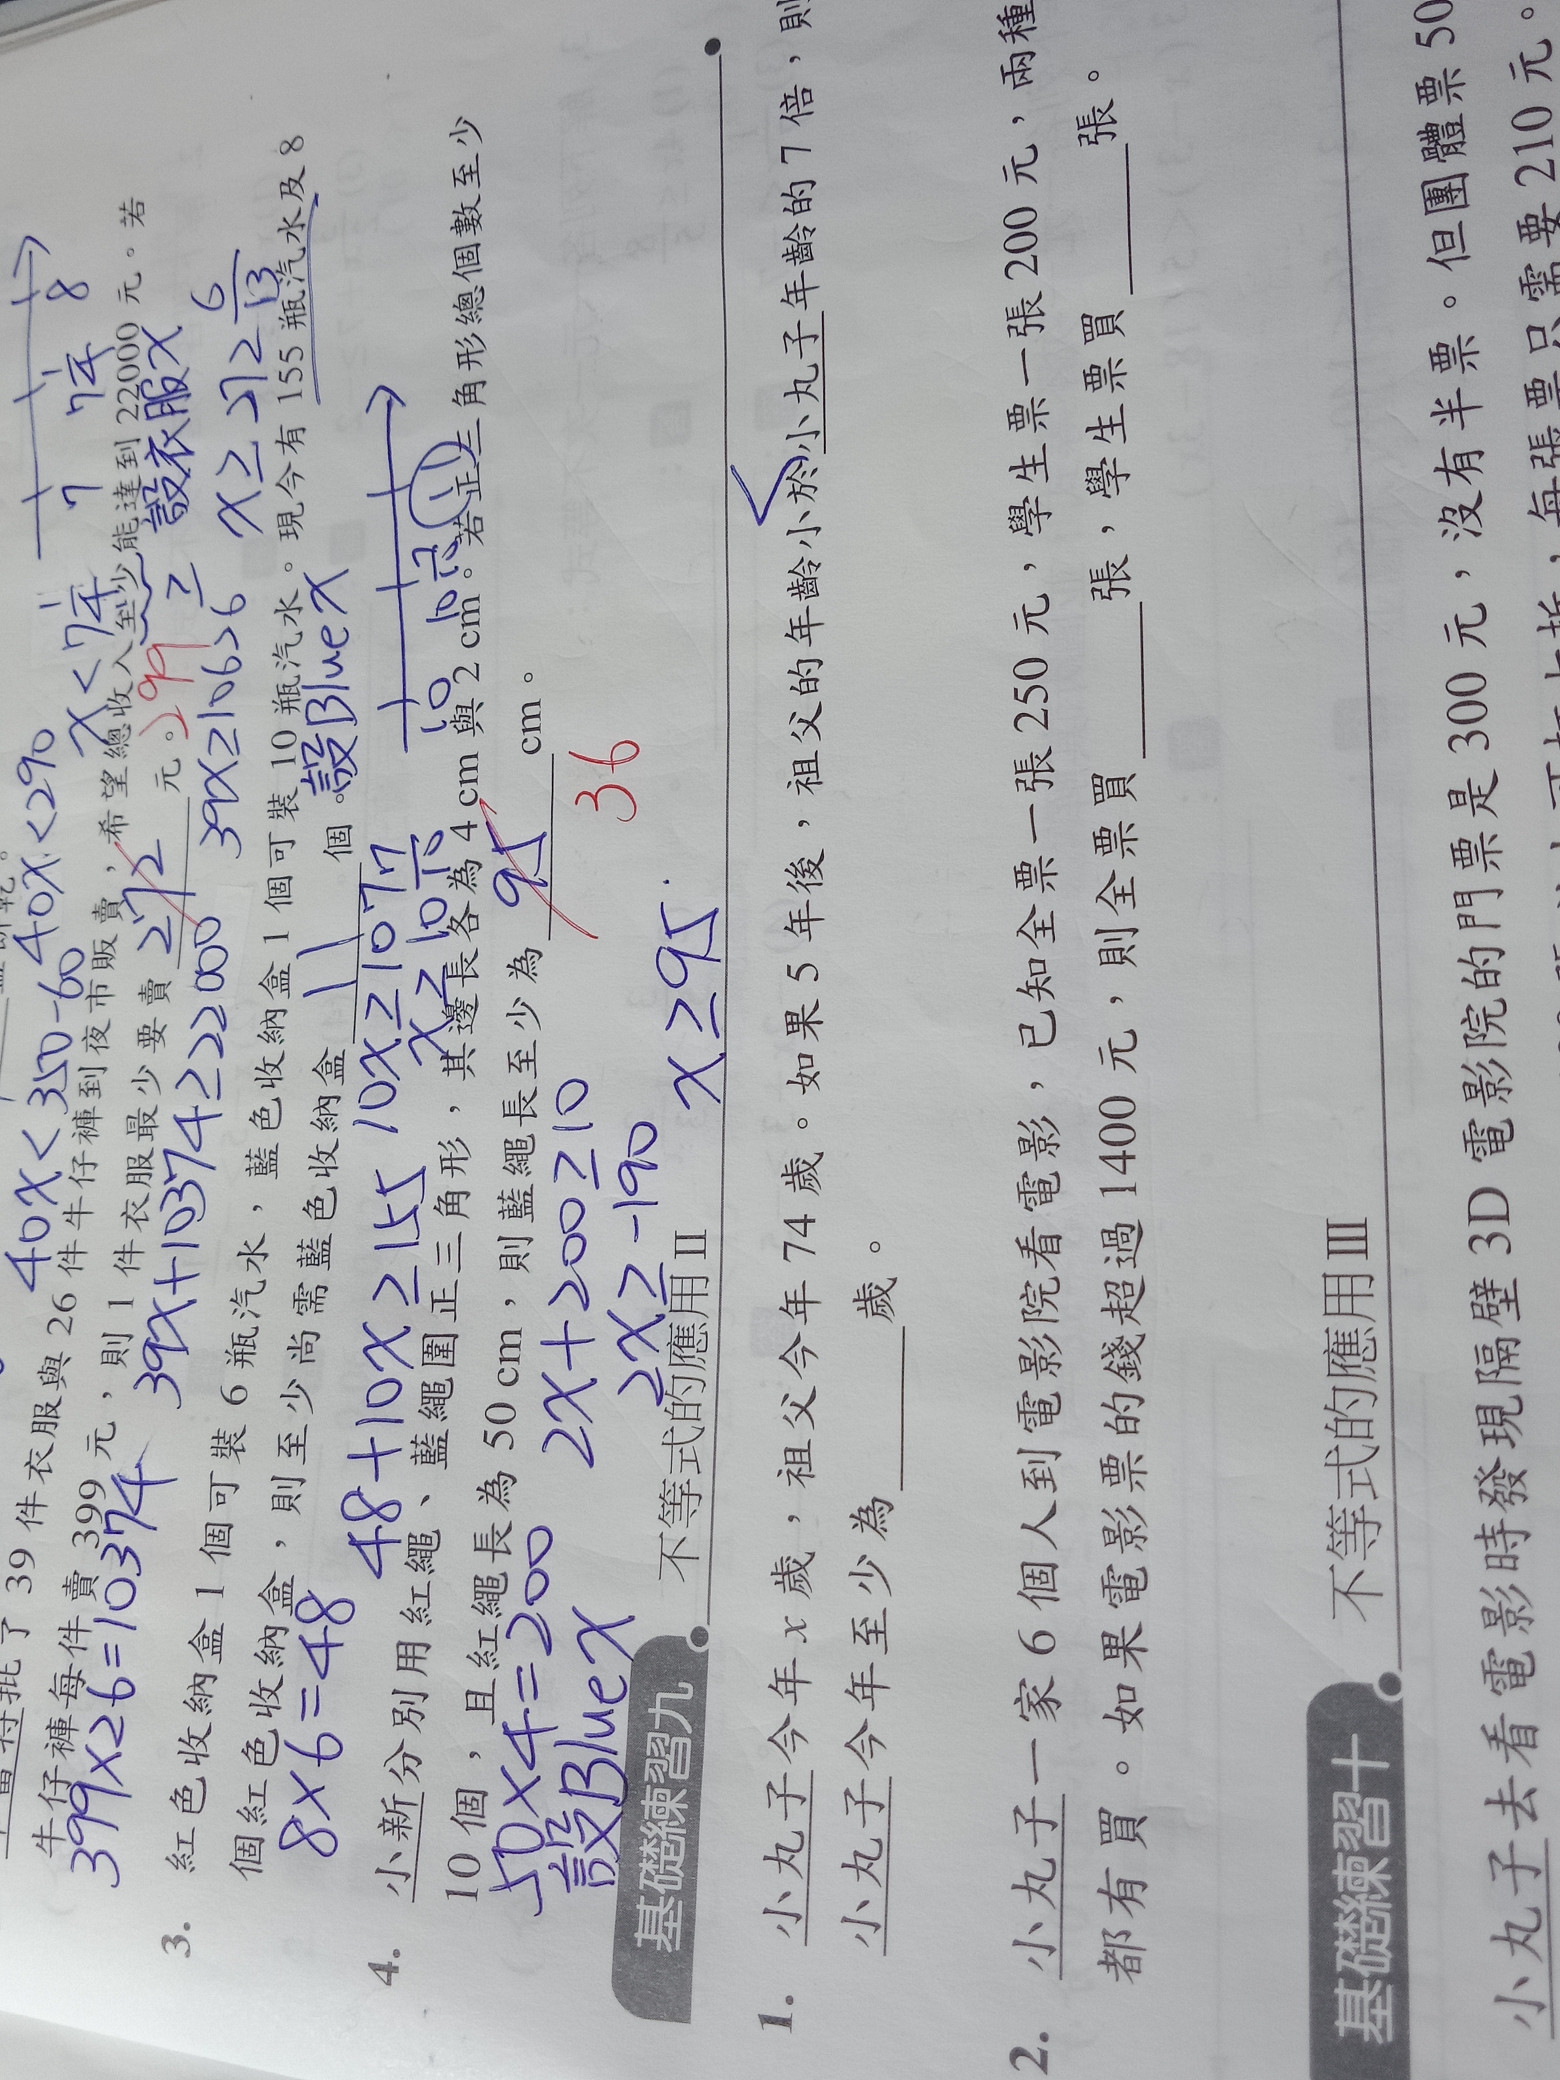 40x<350-60 40x<290
x<7¼
7 7¼ 8
39 件衣服與 26 件牛仔褲到夜市販賣,希望總收入至少能達到 22000 元。若
牛仔褲每件賣 399 元,則 1 件衣服最少要賣 272 元。299
設衣服x
399×26=10374 39x+10374≥22000 39x≥10626 x≥272 6/13
3. 紅色收納盒 1 個可裝 6 瓶汽水,藍色收納盒 1 個可裝 10 瓶汽水。現今有 155 瓶汽水及 8
個紅色收納盒,則至少尚需藍色收納盒 11 個。
設Blue x
8×6=48 48+10x≥155 10x≥107 x≥10 7/10
10 10 7/10 11
4. 小新分別用紅繩、藍繩圍正三角形,其邊長各為 4 cm 與 2 cm。若正三角形總個數至少
10 個,且紅繩長為 50 cm,則藍繩長至少為 95 cm。
36
50×4=200 2x+200≥10
設Blue x 2x≥-190 x≥95
基礎練習九 不等式的應用 II
1. 小丸子今年 x 歲,祖父今年 74 歲。如果 5 年後,祖父的年齡小於小丸子年齡的 7 倍,則
<
小丸子今年至少為 歲。
2. 小丸子一家 6 個人到電影院看電影,已知全票一張 250 元,學生票一張 200 元,兩種
都有買。如果電影票的錢超過 1400 元,則全票買 張,學生票買 張。
基礎練習十 不等式的應用 III
小丸子去看電影時發現隔壁 3D 電影院的門票是 300 元,沒有半票。但團體票 50
每張票只需要 210 元。